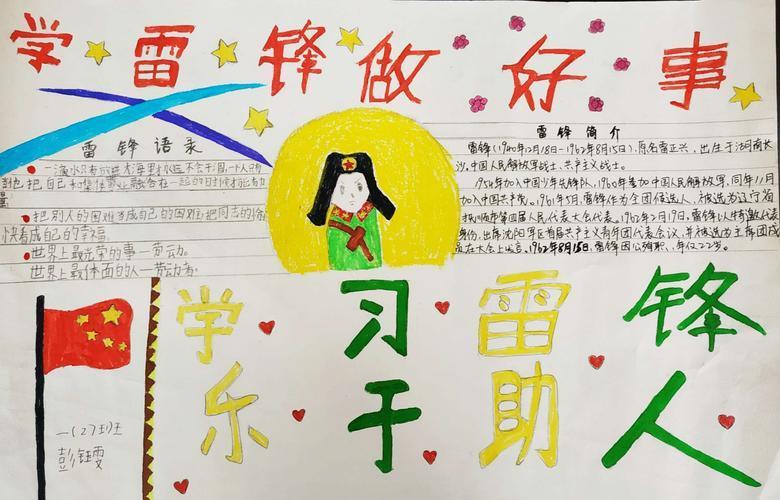 学雷锋做好事
雷锋语录
一滴水只有放进大海里才永远不会干涸,一个人只有
当他把自己和集体事业融合在一起的时候才能有力
量
把别人的困难当成自己的困难,把同志的愉
快看成自己的幸福
世界上最光荣的事一劳动。
世界上最体面的人一劳动者。
雷锋简介
雷锋(1940年12月18日-1962年8月15日),原名雷正兴,出生于湖南长
沙,中国人民解放军战士、共产主义战士。
1954年加入中国少年先锋队,1960年参加中国人民解放军,同年11月
加入中国共产党。1961年5月,雷锋作为全团候选人,被选为辽宁省
抚顺市第四届人民代表大会代表。1962年2月19日,雷锋以特邀代表
身份,出席沈阳军区首届共产主义青年团代表会议,并被选为主席团成
员在大会上发言。1962年8月15日,雷锋因公殉职,年仅22岁。
学习雷锋
乐于助人
一(2)班
彭钰雯